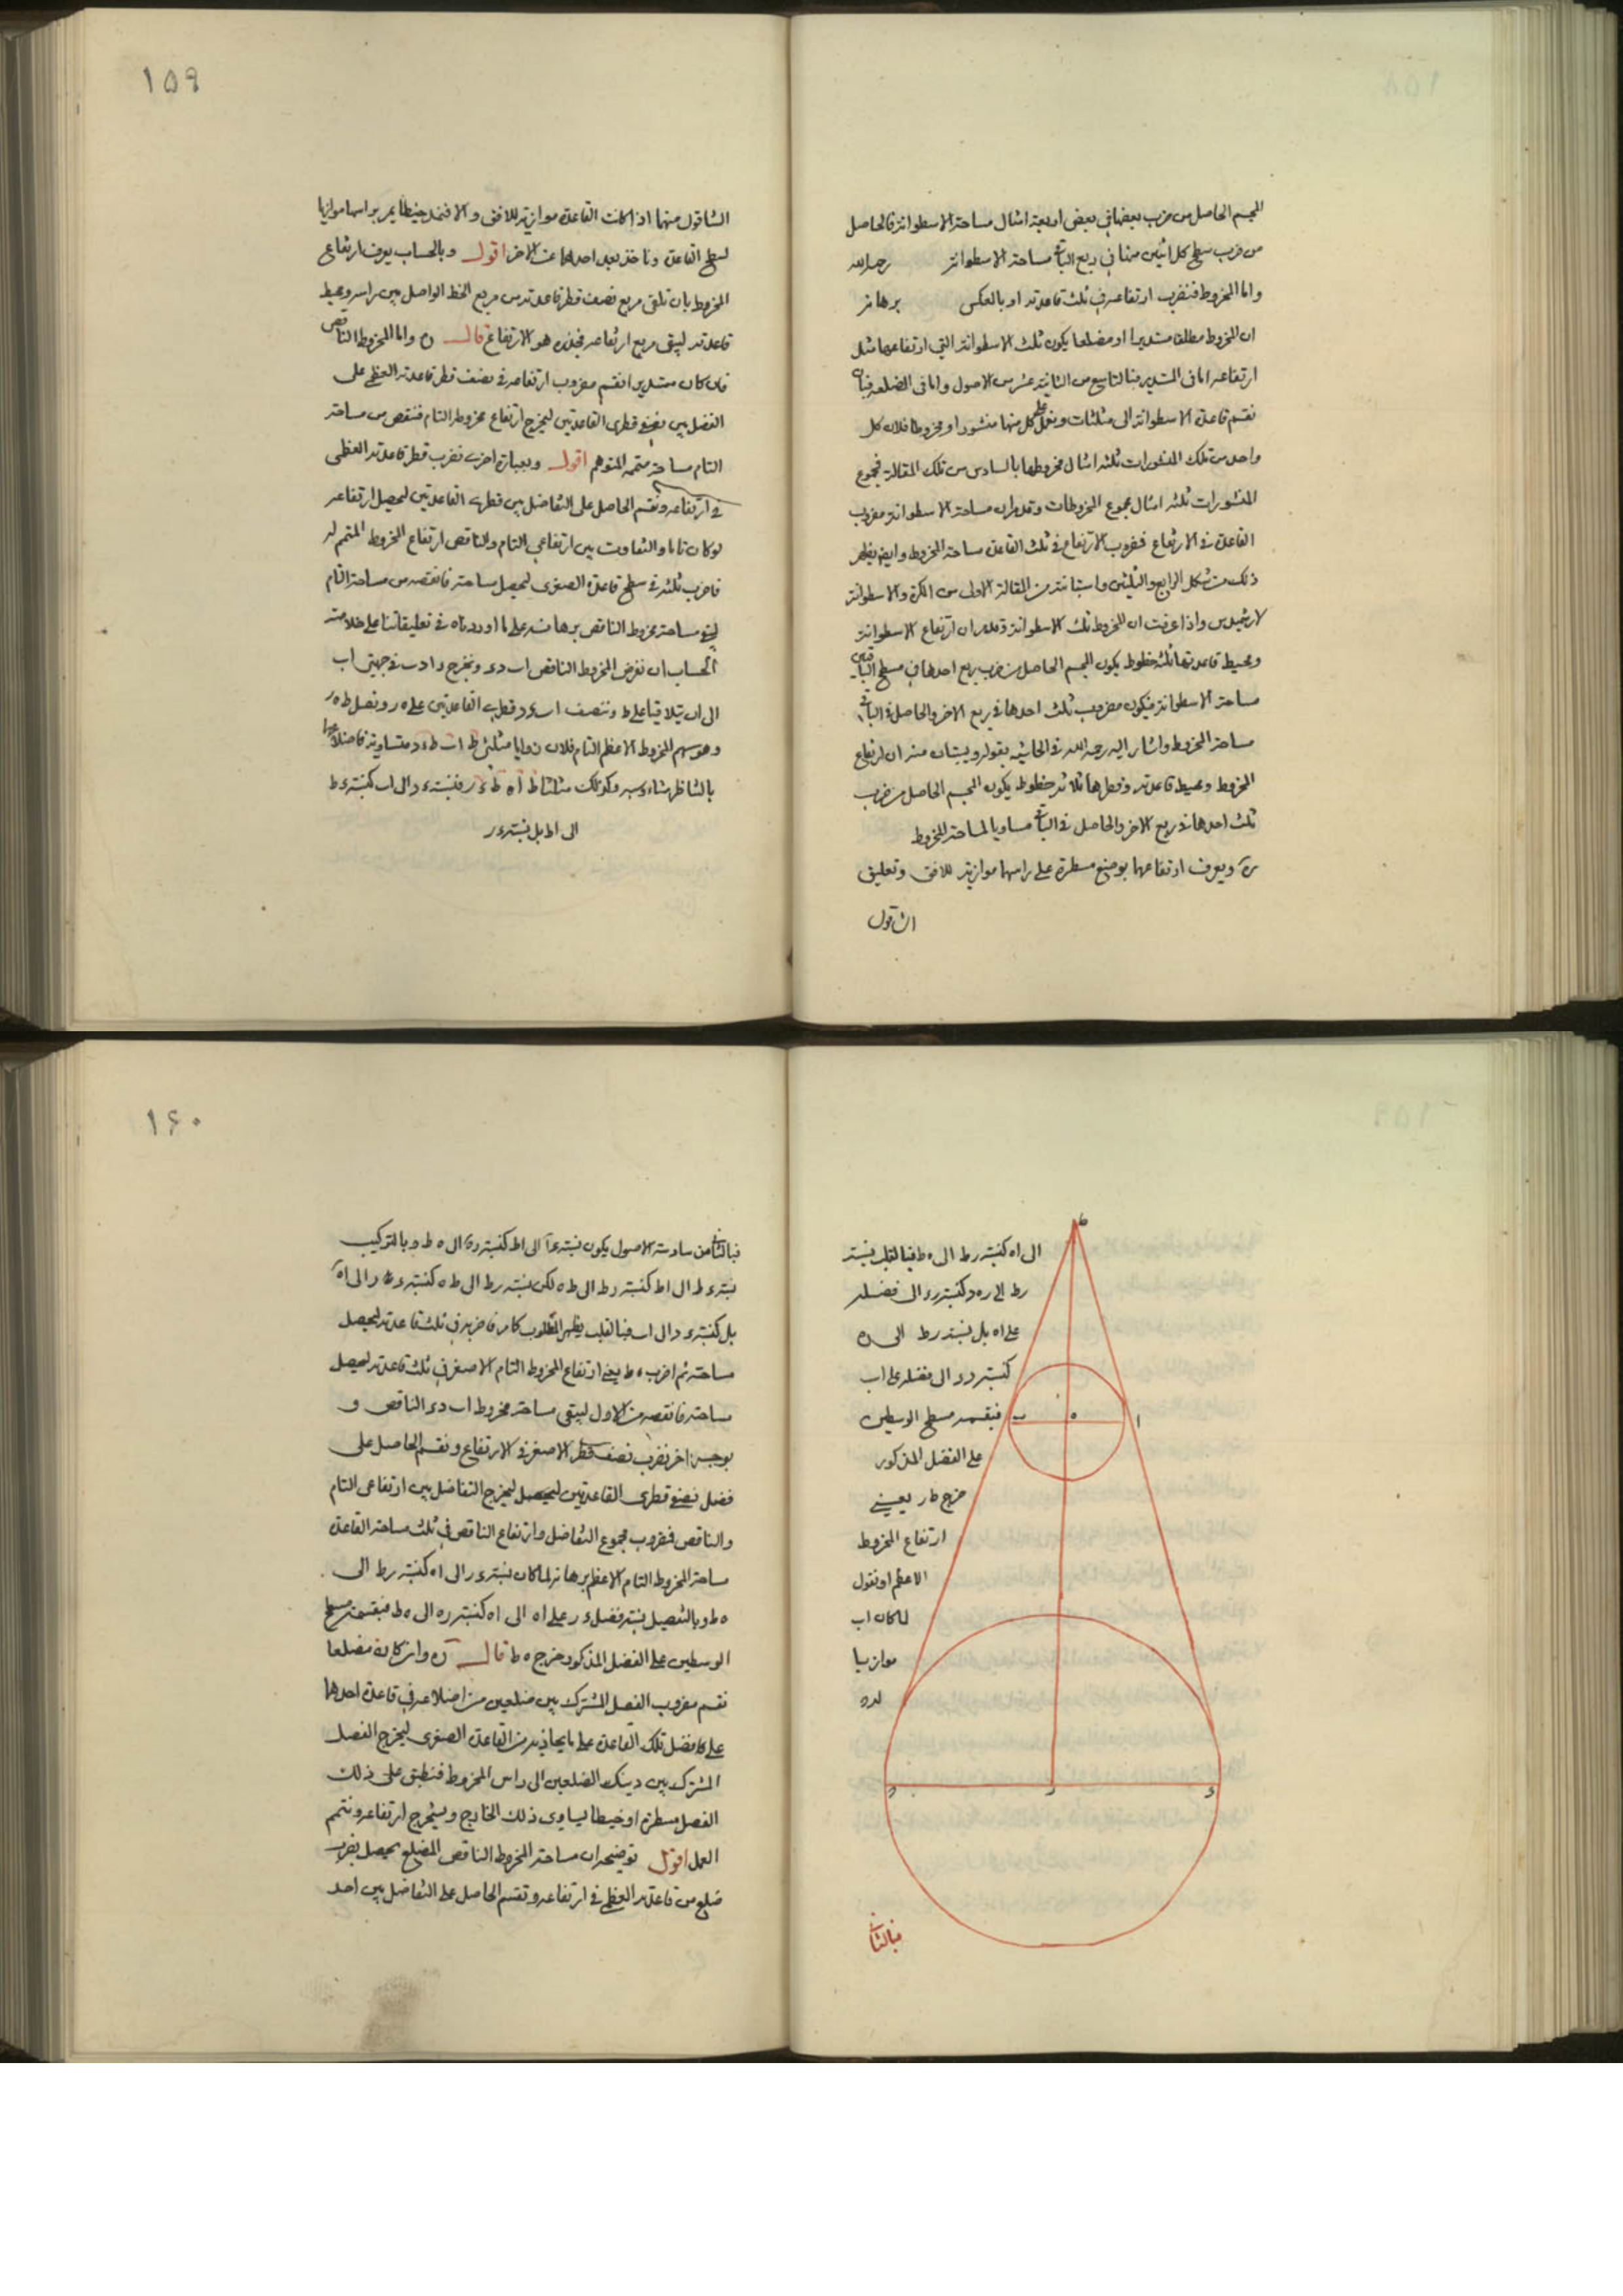 المجسم الحاصل من ضرب بعضها فی بعض اربعة امثال مساحة الاسطوانة فالحاصل
من ضرب سطح کل اثنین منها فی ربع الباقی مساحة الاسطوانة رحمه الله
واما المخروط فنضرب ارتفاعه فی ثلث قاعدته او بالعکس برهانه
ان المخروط مطلقا مستدیرا او مضلعا یکون ثلث الاسطوانة التی ارتفاعها مثل
ارتفاعه اما فی المستدیر فبالتاسع من الثانیة عشر من الاصول واما فی المضلعة فبان
نقسم قاعدة الاسطوانة الی مثلثات ونعمل علی کل منها منشورا ومخروطا فلان کل
واحد من تلک المنشورات ثلثة امثال مخروطها بالسادس من تلک المقالة فمجموع
المنشورات ثلثة امثال مجموع المخروطات وقد مر ان مساحة الاسطوانة مضروب
القاعدة فی الارتفاع فمضروب الارتفاع فی ثلث القاعدة مساحة المخروط وایضا یظهر
ذلک من شکل الرابع والثلثین واستبانته من المقالة الاولی من الکرة والاسطوانة
لارشمیدس واذا عرفت ان المخروط ثلث الاسطوانة وقد مر ان ارتفاع الاسطوانة
ومحیط قاعدتها ثلثة خطوط یکون المجسم الحاصل من ضرب ربع احدها فی مسطح الباقیین
مساحة الاسطوانة فیکون مضروب ثلث احدها فی ربع الاخر والحاصل فی الباقی
مساحة المخروط واشار الیه رحمه الله فی الحاشیة بقوله ویستبان منه ان ارتفاع
المخروط ومحیط قاعدته وقطرها ثلاثة خطوط یکون المجسم الحاصل من ضرب
ثلث احدها فی ربع الاخر والحاصل فی الباقی مساویا لمساحة المخروط
ویعرف ارتفاعهما بوضع مسطرة علی راسهما موازیة للافق وتعلیق
الشاقول
١٥٩
الشاقول منها اذا کانت القاعدة موازیة للافق والا فنمد خیطا یمر براسها موازیا
لسطح القاعدة وناخذ بعد احدهما عن الاخر اقول وبالحساب یعرف ارتفاع
المخروط بان نلقی مربع نصف قطر قاعدته من مربع الخط الواصل بین راسه ومحیط
قاعدته لیبقی مربع ارتفاعه فجذره هو الارتفاع قال واما المخروط الناقص
فان کان مستدیرا نقسم مضروب ارتفاعه فی نصف قطر قاعدته العظمی علی
الفضل بین نصفی قطری القاعدتین لیخرج ارتفاع مخروطه التام فننقص من مساحة
التام مساحة متممه المتوهم اقول وبعبارة اخری نضرب قطر قاعدته العظمی
فی ارتفاعه ونقسم الحاصل علی التفاضل بین قطری القاعدتین لیحصل ارتفاعه
لو کان تاما والتفاوت بین ارتفاعی التام والناقص ارتفاع المخروط المتمم له
فاضرب ثلثه فی سطح قاعدته الصغری لیحصل مساحته فانقصه من مساحة التام
لیبقی مساحة مخروط الناقص برهانه علی ما اوردناه فی تعلیقاتنا علی خلاصة
الحساب ان نفرض المخروط الناقص اب دء ونخرج دا دب فی جهتی اب
الی ان یتلاقیا علی ط وننصف اب ء د قطری القاعدتین علی ه ر ونصل ط ه ر
وهو سهم المخروط الاعظم التام فلان زوایا مثلثی ط اب ط ء د متساویة فاضلاعهما
بالتناظر متناسبة وکذلک مثلثا ط ا ه ط ء ر فنسبة ء د الی اب کنسبة ء ط
الی اط بل نسبة ء ر
الی اه کنسبة رط الی ه ط فبالقلب نسبة
رط الی ر ه کنسبة ر ء الی فضله
علی اه بل نسبة رط الی ره
کنسبة دء الی فضله علی اب
فبقسمة مسطح الوسطین
علی الفضل المذکور
خرج ط ر یعنی
ارتفاع المخروط
الاعظم او نقول
لما کان اب
موازیا
لد ء
ط
ا
ه
ب
ء
ر
د
فبالثانی
١۶٠
فبالثانی من سادسة الاصول یکون نسبة ء ا الی اط کنسبة ره الی ه ط وبالترکیب
نسبة ء ط الی اط کنسبة رط الی ط ه لکن نسبة رط الی ط ه کنسبة ء ر الی اه
بل کنسبة ء د الی اب فبالقلب یظهر المطلوب کما مر فاضربه فی ثلث قاعدته لیحصل
مساحته ثم اضرب ه ط یعنی ارتفاع المخروط التام الاصغر فی ثلث قاعدته لیحصل
مساحته فانقصه من الاول لیبقی مساحة مخروط اب دء الناقص و
بوجه اخر نضرب نصف قطر الاصغر فی الارتفاع ونقسم الحاصل علی
فضل نصفی قطری القاعدتین لیخرج التفاضل بین ارتفاعی التام
والناقص فمضروب مجموع التفاضل وارتفاع الناقص فی ثلث مساحة القاعدة
مساحة المخروط التام الاعظم برهانه لما کان نسبة ء ر الی اه کنسبة رط الی
ه ط وبالتفصیل نسبة فضل ء ر علی اه الی اه کنسبة ره الی ه ط فبقسمة مسطح
الوسطین علی الفضل المذکور خرج ه ط قال وان کان مضلعا
نقسم مضروب الفصل المشترک بین ضلعین من اضلاعه فی قاعدة احدهما
علی فضل تلک القاعدة علی ما یحاذیه من القاعدة الصغری لیخرج الفصل
المشترک بین ذینک الضلعین الی راس المخروط فنطبق علی ذلک
الفصل مسطرة او خیطا یساوی ذلک الخارج ویستخرج ارتفاعه ونتمم
العمل اقول توضیحه ان مساحة المخروط الناقص المضلع یحصل بضرب
ضلع من قاعدته العظمی فی ارتفاعه ونقسم الحاصل علی التفاضل بین احد